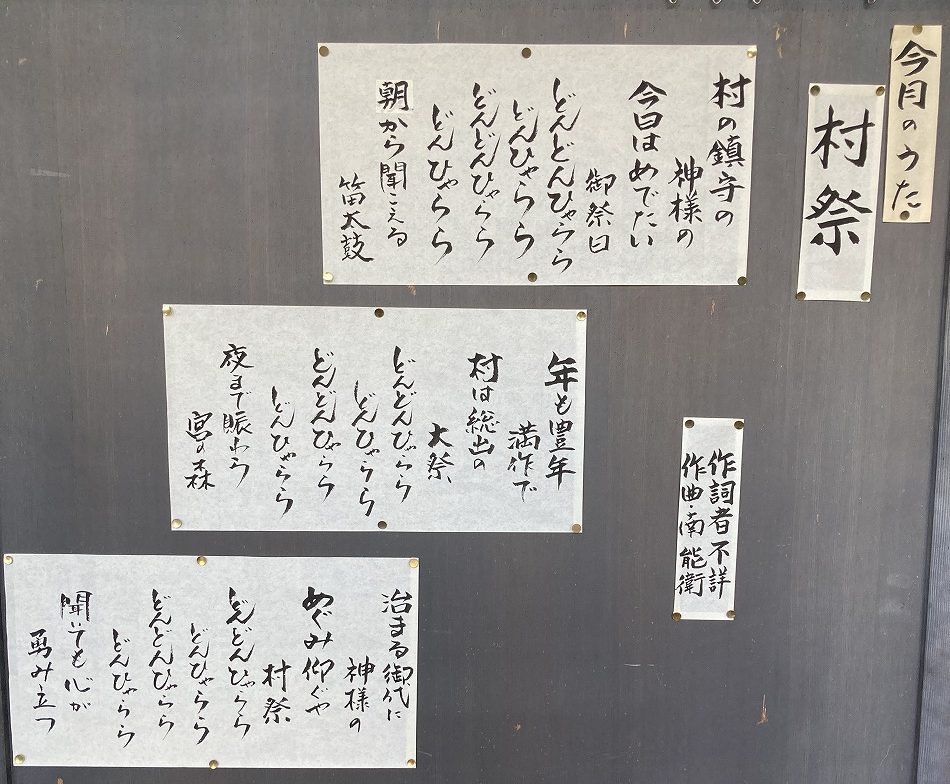 今月のうた
村祭
村の鎮守の
神様の
今日はめでたい
御祭日
どんどんひゃらら
どんひゃらら
どんどんひゃらら
どんひゃらら
朝から聞こえる
笛太鼓
作詞者不詳
作曲・南能衛
年も豊年
満作で
村は総出の
大祭
どんどんひゃらら
どんひゃらら
どんどんひゃらら
どんひゃらら
夜まで賑わう
宮の森
治まる御代に
神様の
めぐみ仰ぐや
村祭
どんどんひゃらら
どんひゃらら
どんどんひゃらら
どんひゃらら
聞いても心が
勇み立つ